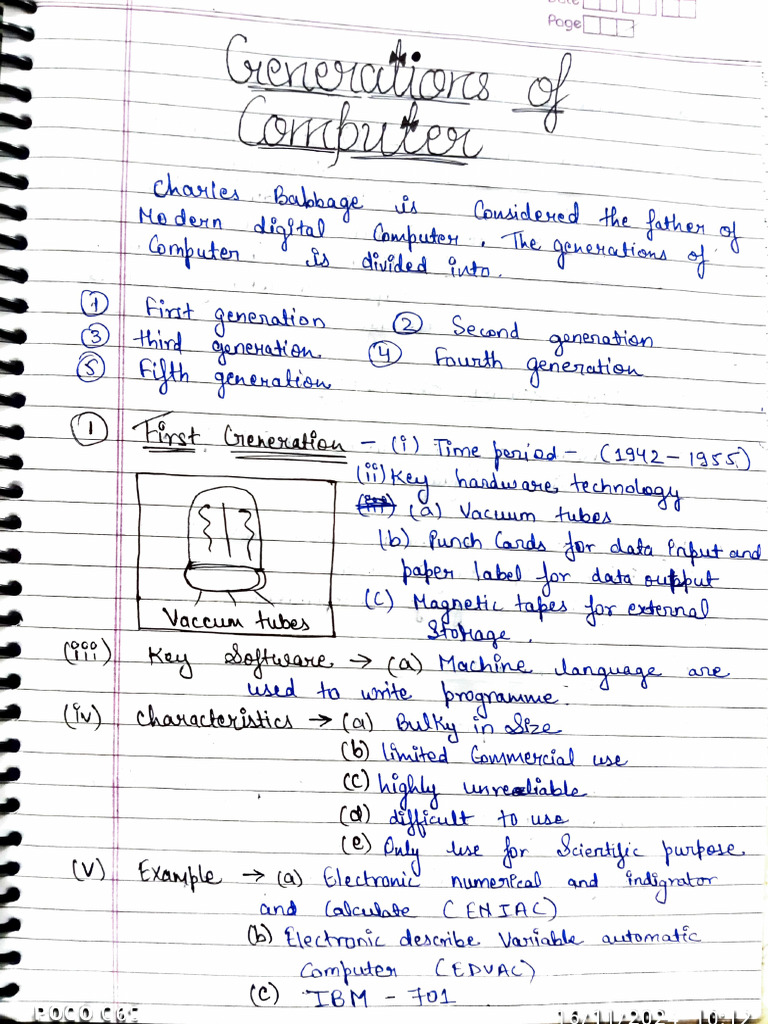 Date
Page
Generations of
Computer
Charles Babbage is Considered the father of
Modern digital Computer. The generations of
Computer is divided into.
① First generation ② Second generation
③ third generation ④ Fourth generation
⑤ Fifth generation
① First Generation - (i) Time period - (1942-1955)
(ii) Key hardware technology
(a) Vacuum tubes
(b) Punch Cards for data Input and
paper label for data output
(c) Magnetic tapes for external
Storage.
Vaccum tubes
(iii) Key Software → (a) Machine language are
used to write programme.
(iv) Characteristics → (a) Bulky in Size
(b) limited Commercial use
(c) highly unreliable
(d) difficult to use
(e) Only use for Scientific purpose
(v) Example → (a) Electronic numerical and indigrator
and Calculate (ENIAC)
(b) Electronic describe Variable automatic
Computer (EDVAC)
(c) IBM - 701
POCO C65